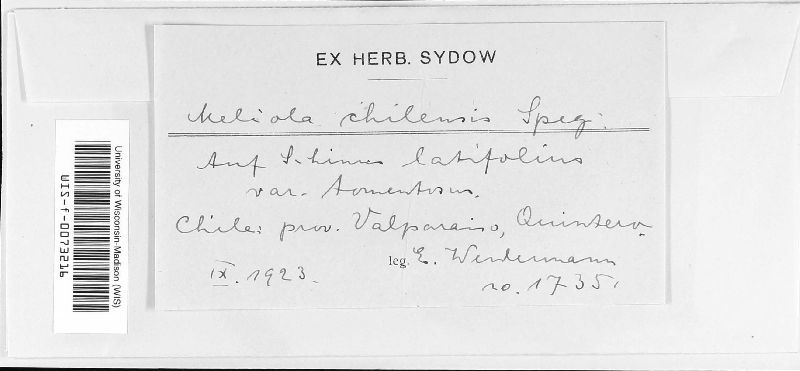 EX HERB. SYDOW
Meliola chilensis Speg.
Auf Schinus latifolius
var. tomentosus.
Chile: prov. Valparaiso, Quintero.
IX. 1923.
leg. E. Werdermann
no. 1735.
University of Wisconsin-Madison (WIS)
WIS-f-0073216